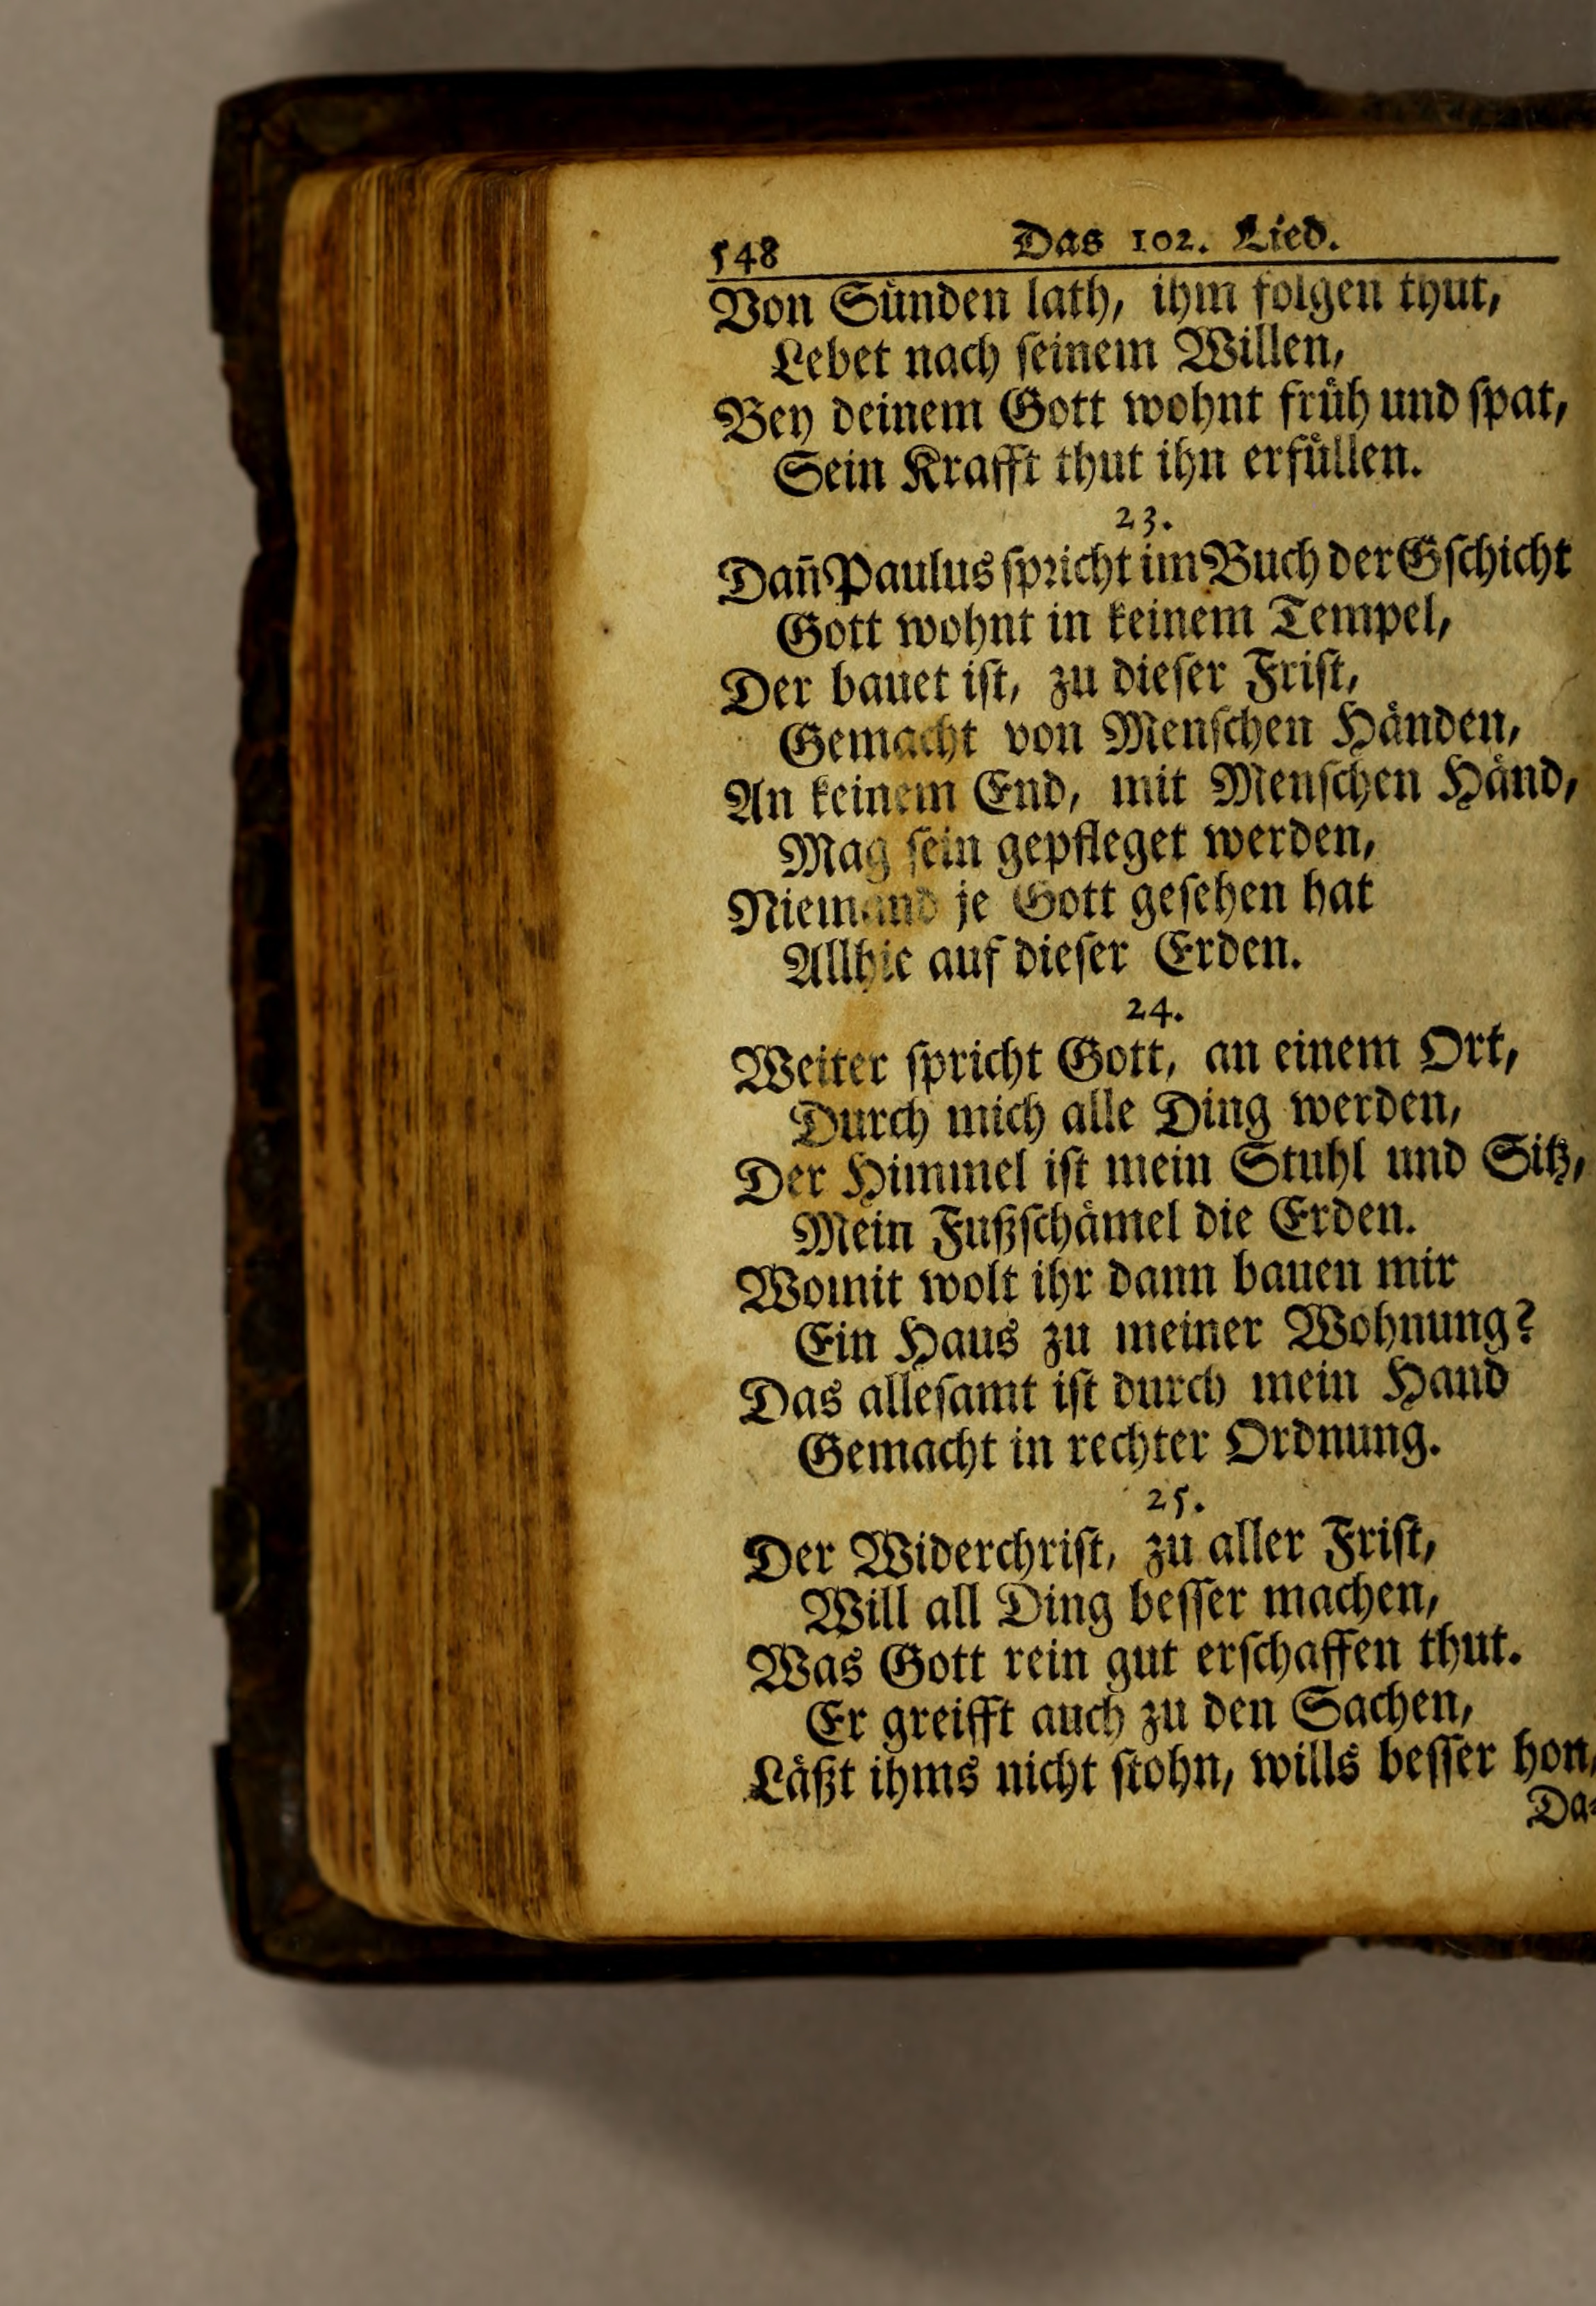 548 Das 102. Lied.
Von Sünden lath, ihm folgen thut,
Lebet nach ſeinem Willen,
Bey deinem Gott wohnt früh und ſpat,
Sein Krafft thut ihn erfüllen.
23.
Dañ Paulus ſpricht im Buch der Gſchicht
Gott wohnt in keinem Tempel,
Der bauet iſt, zu dieſer Friſt,
Gemacht von Menſchen Händen,
An keinem End, mit Menſchen Händ,
Mag ſein gepfleget werden,
Niemand je Gott geſehen hat
Allhie auf dieſer Erden.
24.
Weiter ſpricht Gott, an einem Ort,
Durch mich alle Ding werden,
Der Himmel iſt mein Stuhl und Sitz,
Mein Fußſchämel die Erden.
Womit wolt ihr dann bauen mir
Ein Haus zu meiner Wohnung?
Das alleſamt iſt durch mein Hand
Gemacht in rechter Ordnung.
25.
Der Widerchriſt, zu aller Friſt,
Will all Ding beſſer machen,
Was Gott rein gut erſchaffen thut.
Er greifft auch zu den Sachen,
Läßt ihms nicht ſtohn, wills beſſer hon,
Da-